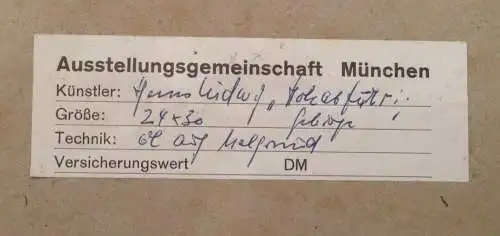 Ausstellungsgemeinschaft München
Künstler: Hans Ludwig,
Größe: 24 x 30 Gebirge
Technik: Öl auf Malgrund
Versicherungswert DM